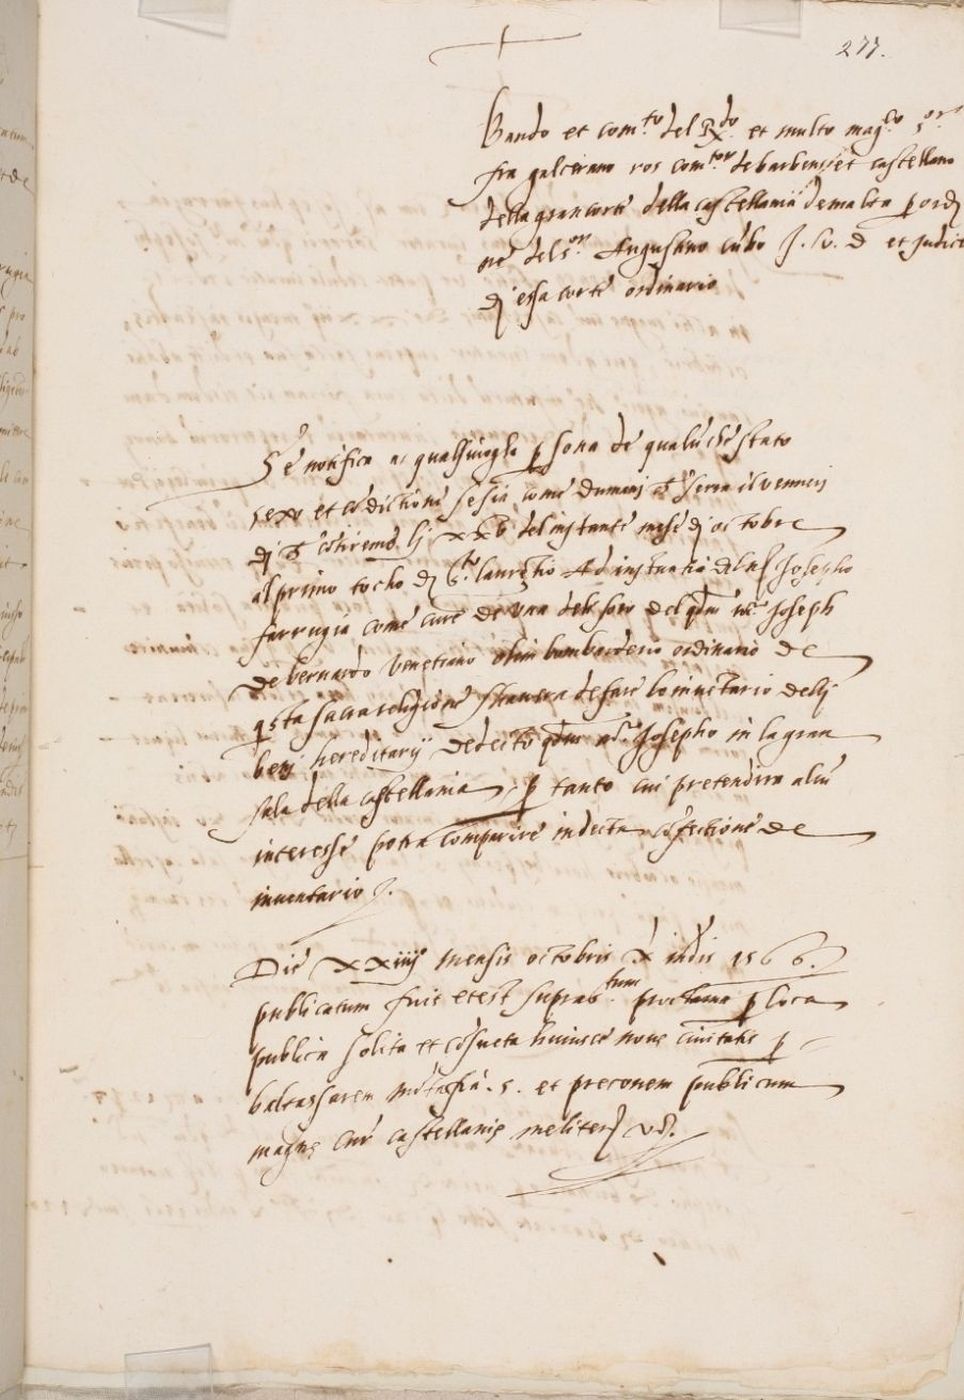 277.
Bando et com.to del R.do et multo mag.co s.or
fra galcerano ros com.tor de barbens et castellano
della gran corte della castellania de malta p ordi
ne del s.or Augustino cubo J. V. D et Judice
di essa corte ordinario
Se notifica a qualsivogla p sona de qualu che stato
sexo et co dictione se sia come dumani sera il venneri
di li xxv del instante mese di octobre
al primo tocho di S.to laurentio Ad instantia del Josepho
farrugia come cure de una del q.m m.ro Joseph
de bernardo venetiano olim bombarderio ordinario de
q sta sacra religione havera de fare lo inventario delli
beni hereditarij de decto q.m m.ro Josepho in la gran
sala della castellania p tanto cui pretendira alcu
interesse potra comparire in decta co fectione de
inventario
Die xxiiij mensis octobris X indis 1566.
publicatum fuit et est supras.tum proclama p loca
publica solita et co sueta huiusce nove civitatis p
baltassarem et preconem publicum
magne cur castellanie meliten